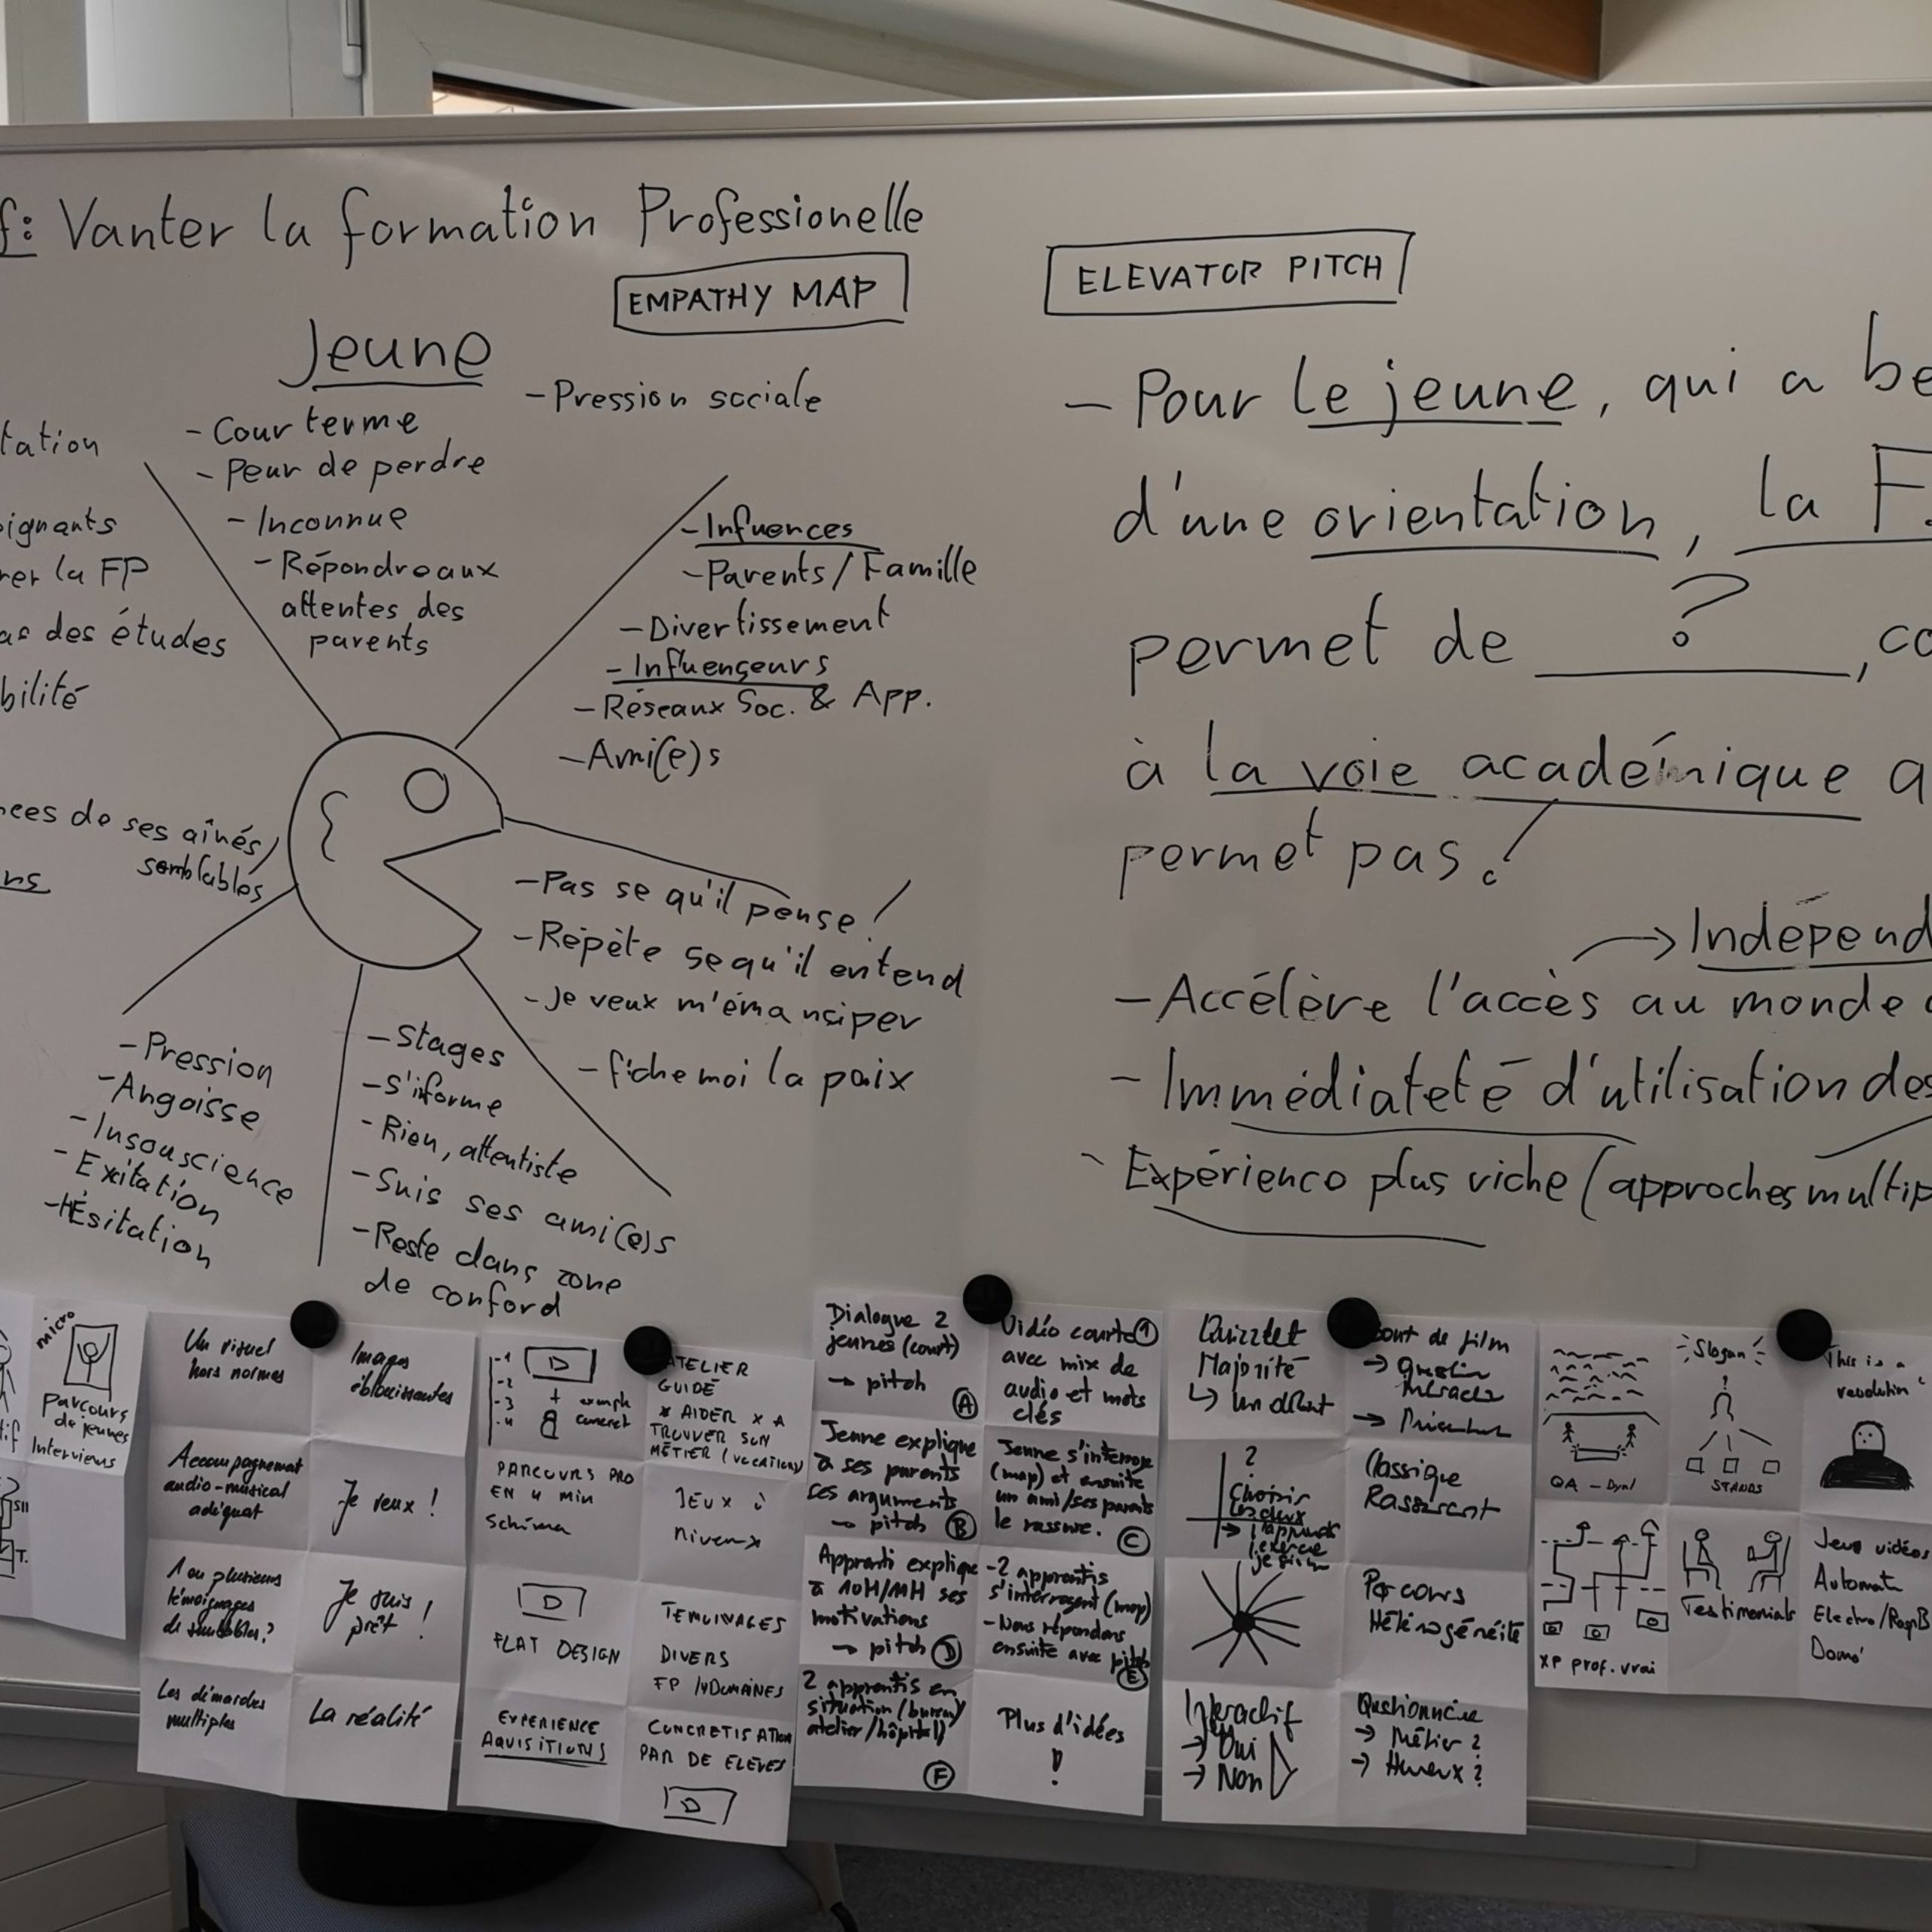 f: Vanter la formation Professionelle
EMPATHY MAP
Jeune
- Pression sociale
tation
- Cour terme
- Peur de perdre
- Inconnue
- Répondre aux
attentes des
parents
ignants
rer la FP
as des études
bilité
- Influences
- Parents / Famille
- Divertissement
- Influenceurs
- Réseaux Soc. & App.
- Ami(e)s
nces de ses aînés/
semblables
ns
- Pas se qu'il pense !
- Répète se qu'il entend
- Je veux m'émanciper
- fiche moi la paix
- Pression
- Angoisse
- Insouscience
- Exitation
- Hésitation
- Stages
- S'informe
- Rien, attentiste
- Suis ses ami(e)s
- Reste dans zone
de conford
ELEVATOR PITCH
- Pour le jeune, qui a be
d'une orientation, la F.
permet de ?, co
à la voie académique q
permet pas.
→ Indépend
- Accélère l'accès au monde
- Immédiateté d'utilisation des
- Expérience plus riche (approches multip
micro
Parcours
de jeunes
Interviews
Un visuel
hors normes
Images
éblouissantes
Accompagnement
audio-musical
adéquat
Je veux !
1 ou plusieurs
témoignages
Je suis
prêt !
Les démarches
multiples
La réalité
-1
-2
-3
-4
D
+ exemple
concret
ATELIER
GUIDÉ
* AIDER X A
TROUVER SON
MÉTIER (VOCATION)
PARCOURS PRO
EN 4 MIN
Schéma
JEUX à
niveaux
D
FLAT DESIGN
TEMOINAGES
DIVERS
EXPERIENCE
AQUISITIONS
CONCRETISATION
PAR DE ELEVES
D
Dialogue 2
jeunes (court)
→ pitch
A
Vidéo courte 1
avec mix de
audio et mots
clés
Jeune explique
à ses parents
ses arguments
→ pitch B
Jeune s'interroge
(map) et ensuite
un ami/ses parents
le rassure. C
Apprenti explique
à 10H/11H ses
motivations
→ pitch D
-2 apprentis
s'interrogent (map)
- Nous répondons
ensuite avec pitch
E
2 apprentis en
situation (bureau/
atelier/hôpital)
F
Plus d'idées
!
Majorité
de film
?
Choisir
Classique
Parcours
Hétérogénéité
Interactif
→ Oui
→ Non
Questionnaire
→ Métier ?
→ Heureux ?
Slogan
?
STANDS
This is a
revolution
XP prof. vrai
Testimonials
Jeux vidéos
Automat